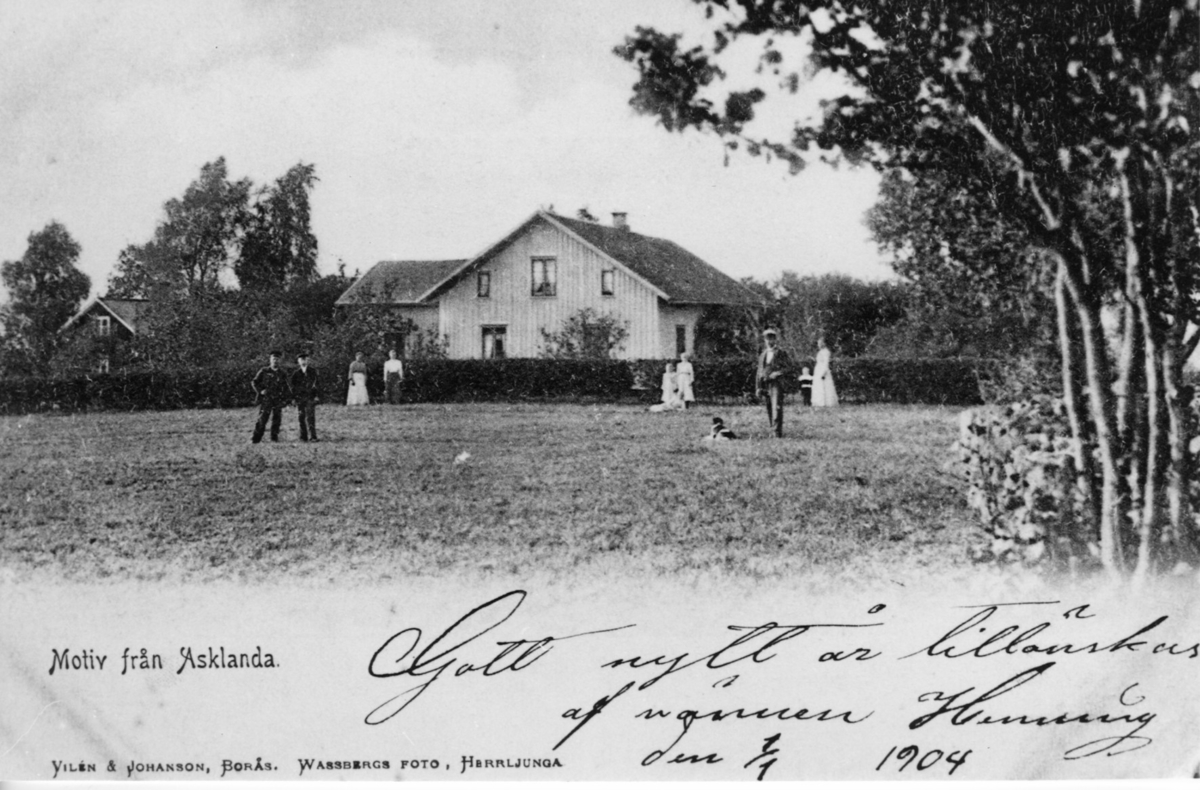 Motiv från Asklanda.
Gott nytt år tillönskas
af vännen Henning
den 1/1 1904
Vilén & Johanson, Borås. Wassbergs foto, Herrljunga